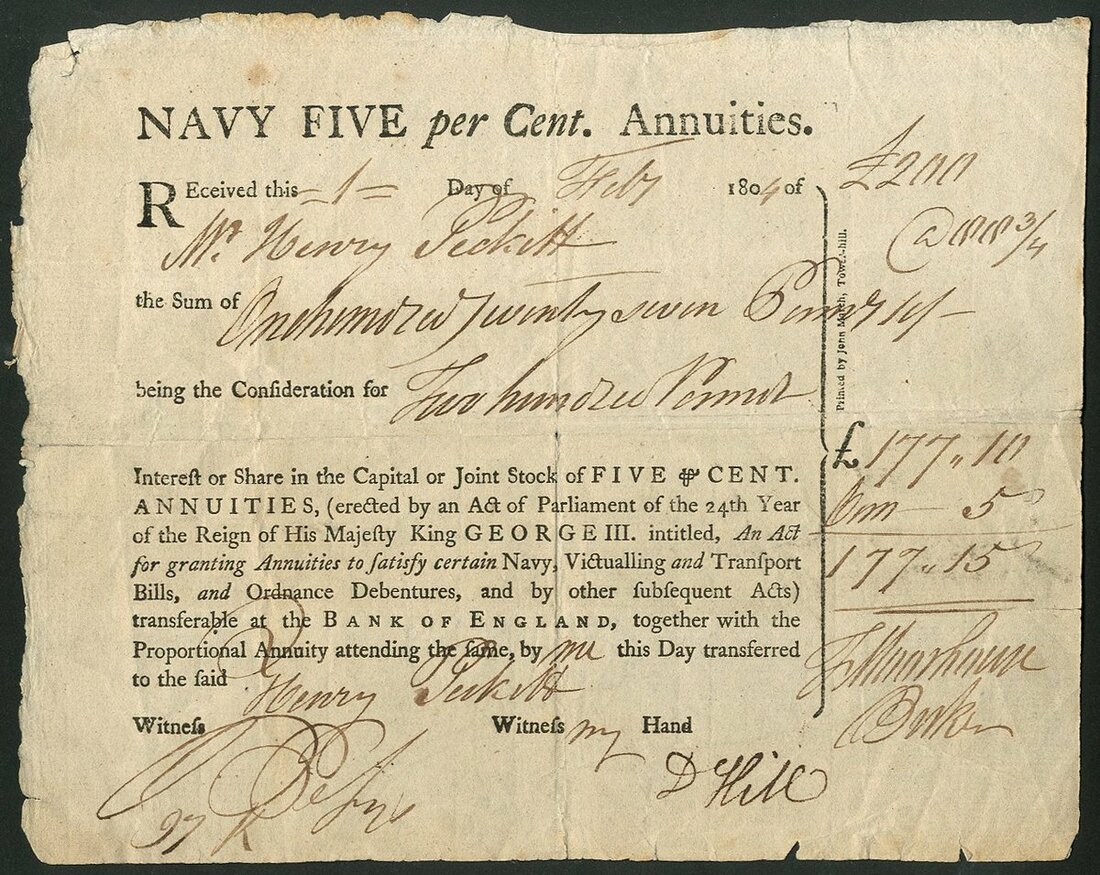 NAVY FIVE per Cent. Annuities.
REceived this =1= Day of Feby 1804 of
Mr. Henry Peckitt
the Sum of One hundred Seventy seven Pounds 10/-
being the Conſideration for Two hundred Pounds
Intereſt or Share in the Capital or Joint Stock of FIVE ⅌ CENT.
ANNUITIES, (erected by an Act of Parliament of the 24th Year
of the Reign of His Majeſty King GEORGE III. intitled, An Act
for granting Annuities to ſatisfy certain Navy, Victualling and Tranſport
Bills, and Ordnance Debentures, and by other ſubſequent Acts)
transferable at the BANK OF ENGLAND, together with the
Proportional Annuity attending the ſame, by me this Day transferred
to the ſaid Henry Peckitt
Witneſs Witneſs my Hand
D Hill
£200
@ 88 3/4
Printed by John March, Tower-hill.
£ 177 " 10
Com — 5
177 " 15
Broker